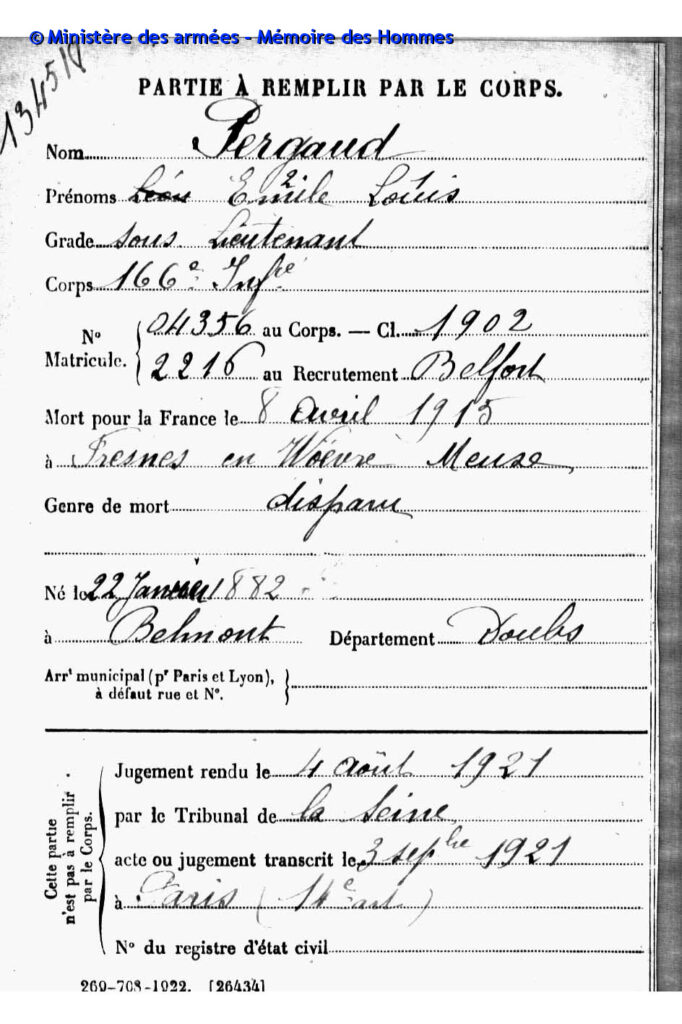 © Ministère des armées - Mémoire des Hommes
134518
PARTIE À REMPLIR PAR LE CORPS.
Nom Pergaud
Prénoms Léon Emile 2 Louis 1
Grade sous Lieutenant
Corps 166e Infie
No Matricule. { 04356 au Corps. — Cl. 1902
2216 au Recrutement Belfort
Mort pour la France le 8 avril 1915
à Fresnes en Woëvre Meuse
Genre de mort disparu
Né le 22 Janvier 1882
à Belmont Département Doubs
Arrt municipal (pr Paris et Lyon),
à défaut rue et No. }
Cette partie n'est pas à remplir par le Corps.
Jugement rendu le 4 août 1921
par le Tribunal de la Seine
acte ou jugement transcrit le 3 sepbre 1921
à Paris (14e art)
No du registre d'état civil
269-708-1922. [26434]